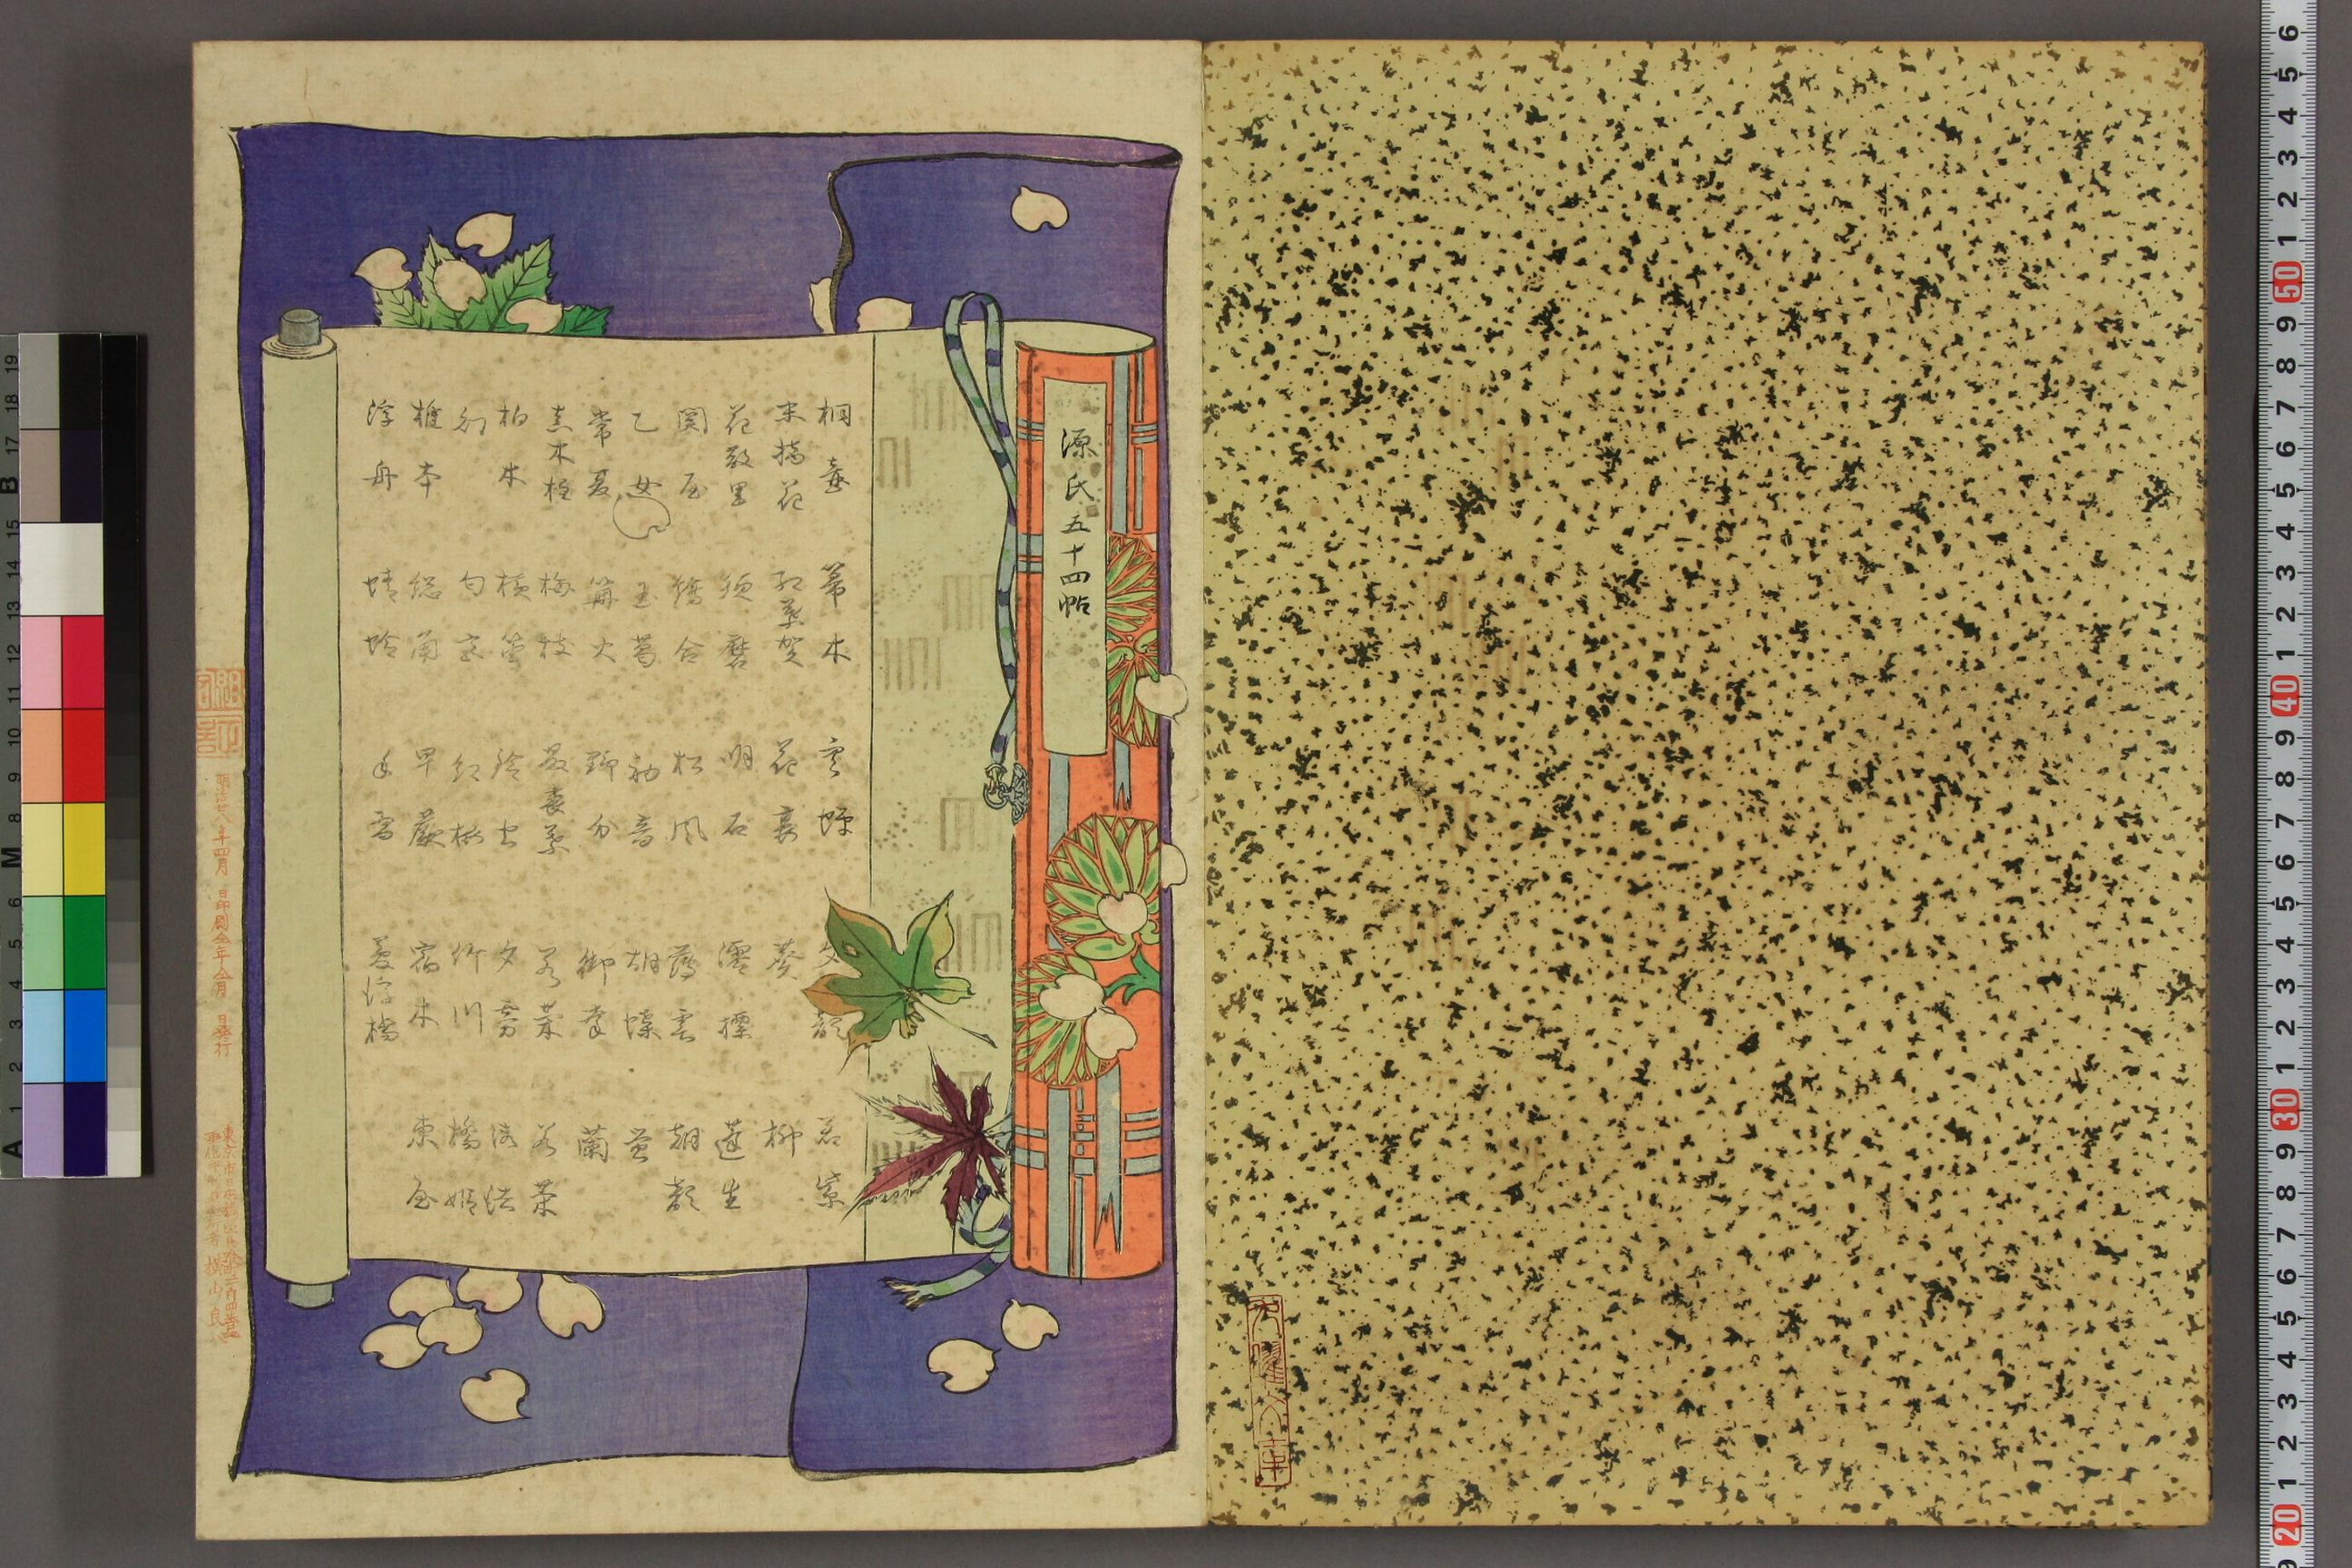 源氏五十四帖
桐壷 箒木 空蝉 夕顔 若紫
末摘花 紅葉賀 花宴 葵 榊
花散里 須磨 明石 澪標 蓬生
関屋 繪合 松風 薄雲 朝顔
乙女 玉葛 初音 胡蝶 蛍
常夏 篝火 野分 御幸 蘭
真木柱 梅枝 藤裏葉 若菜 若菜
柏木 横笛 鈴虫 夕霧 御法
幻 匂宮 紅梅 竹川 橋姫
椎本 総角 早蕨 宿木 東屋
浮舟 蜻蛉 手習 夢浮橋
明治廿八年四月 日印刷仝年仝月 日発行
東京市日本橋区
横山良